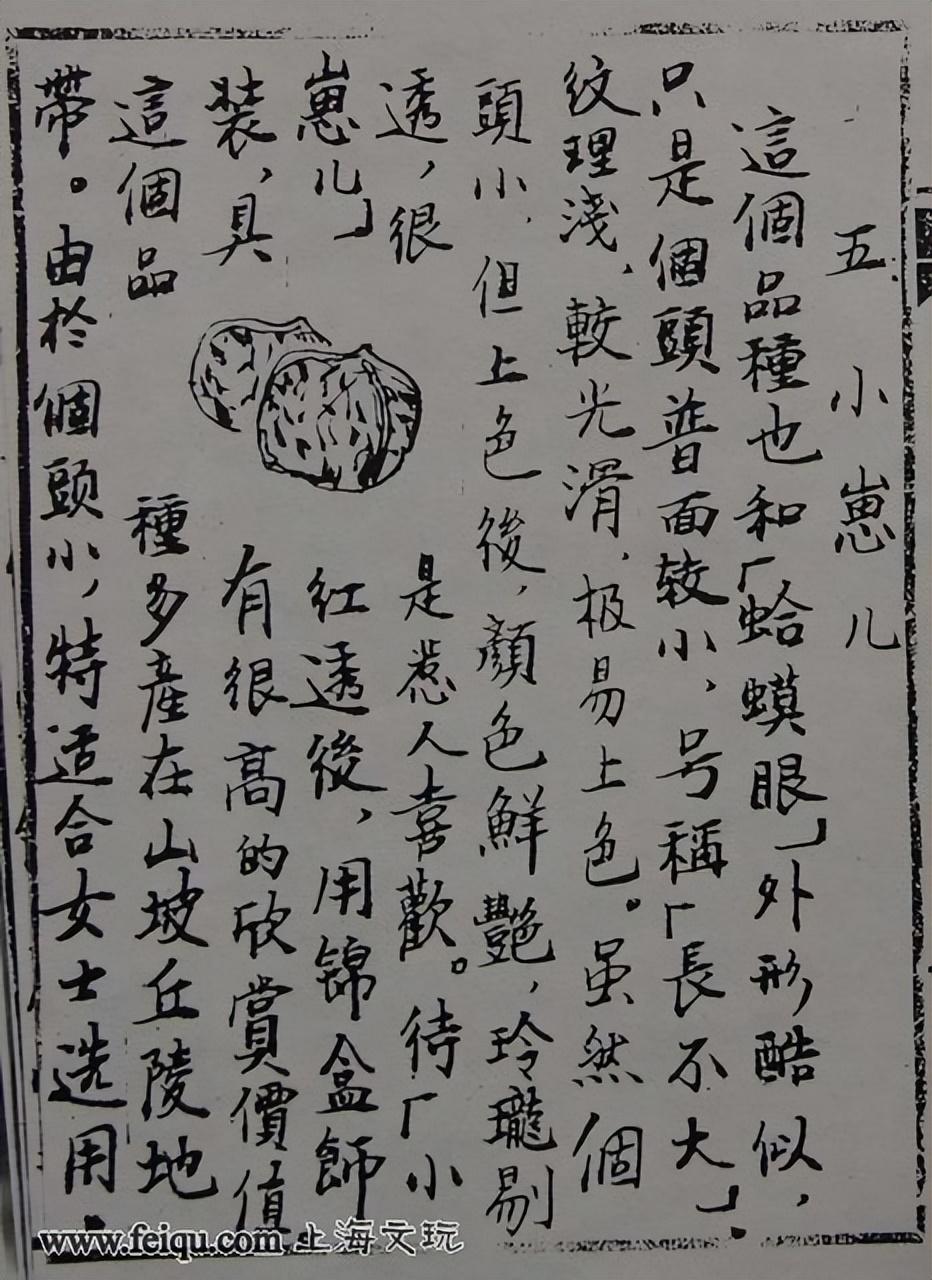 五.小崽儿
這個品種也和「蛤蟆眼」外形酷似,
只是個頭普面较小,号稱「長不大」.
纹理淺,較光滑,极易上色。虽然個
頭小,但上色後,顏色鮮艷,玲瓏剔
透,很是惹人喜歡。待「小
崽儿」红透後,用锦盒飾
装,具有很高的欣賞價值
這個品種多產在山坡丘陵地
帶。由於個頭小,特适合女士选用.
www.feiqu.com上海文玩